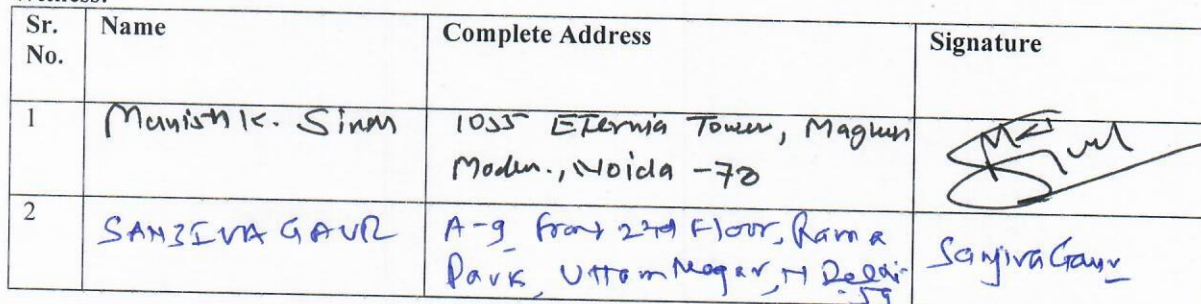 Witness:
Sr. No. Name Complete Address Signature
1 Manish K. Singh 1055 Eternia Tower, Maghun
Modern., Noida - 78
2 SANJIVA GAUR A-9 front 2nd Floor, Rama
Park, Uttam Nagar, N Delhi
- 59
Sanjiva Gaur